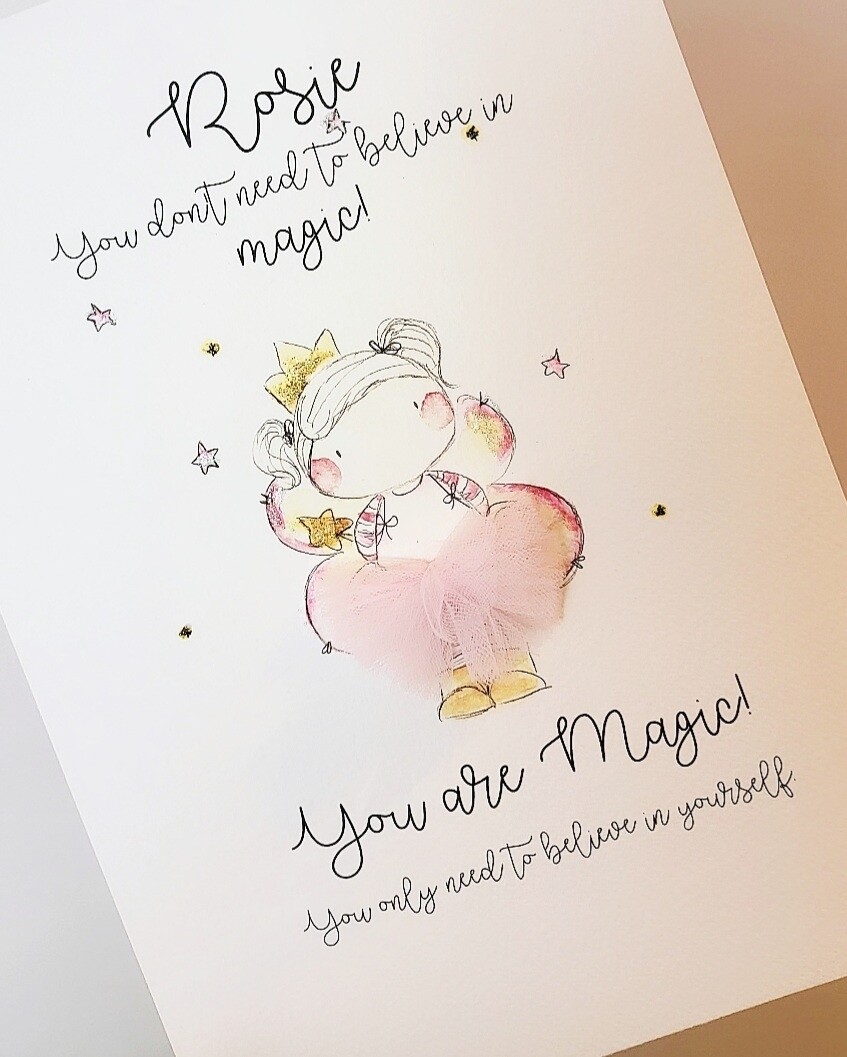 Rosie
You don't need to believe in
magic!
You are Magic!
You only need to believe in yourself.